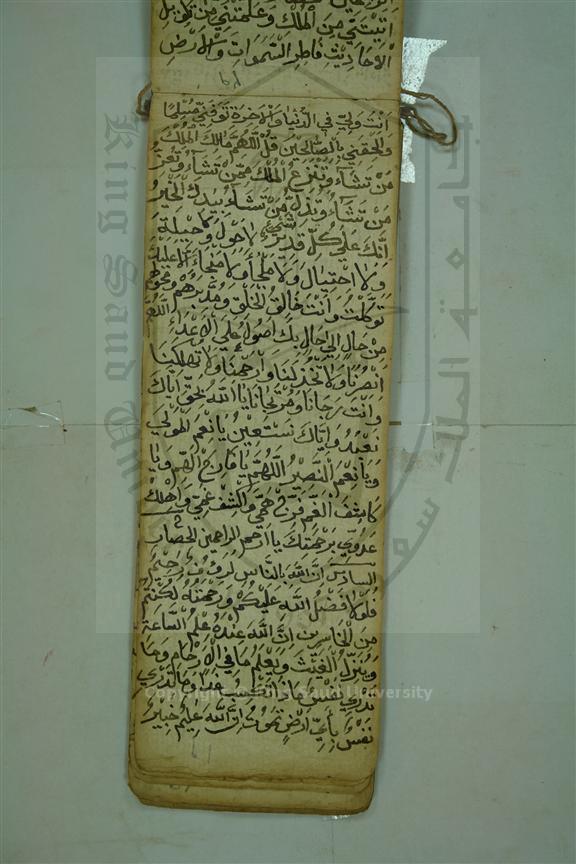 اتيتني من الملك وعلمتني من تاويل
الاحاديث فاطر السموات والارض
انت وليي في الدنيا والاخرة توفني مسلما
والحقني بالصالحين قل اللهم مالك الملك
من تشاء وتنزع الملك ممن تشاء وتعز
من تشاء وتذل من تشاء بيدك الخير
انك علي كل شيئ قدير لا حول ولا حيلة
ولا احتيال ولا ملجأ ولا منجاء الا عليك
توكلت وانت خالق الخلق ومدبرهم ومحولهم
من حال الي حال بك اصول علي الاعداء اللهم
انصرنا ولا تخذلنا وارحمنا ولا تهلكنا
وانت رجانا ومرتجانا يا الله بحق اياك
نعبد واياك نستعين يا نعم المولي
ويا نعم النصير اللهم يا فارج الهم ويا
كاشف الغم فرج همي واكشف غمي واهلك
عدوي برحمتك يا ارحم الراحمين الحصار
السادس ان الله بالناس لرؤف رحيم
فلولا فضل الله عليكم ورحمته لكنتم
من الخاسرين ان الله عنده علم الساعة
وينزل الغيث ويعلم ما في الارحام وما
تدري نفس ماذا تكسب غدا وما تدري
نفس باي ارض تموت ان الله عليم خبير
Copyright © King Saud University